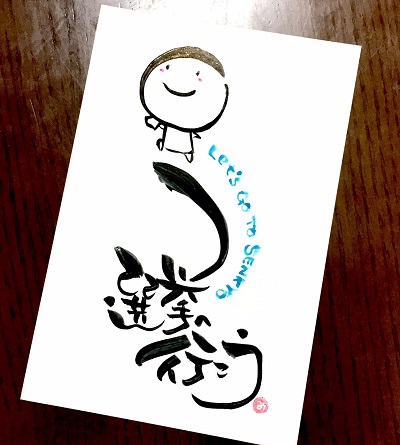 Let's GO TO SENKYO
選挙へ
行こう